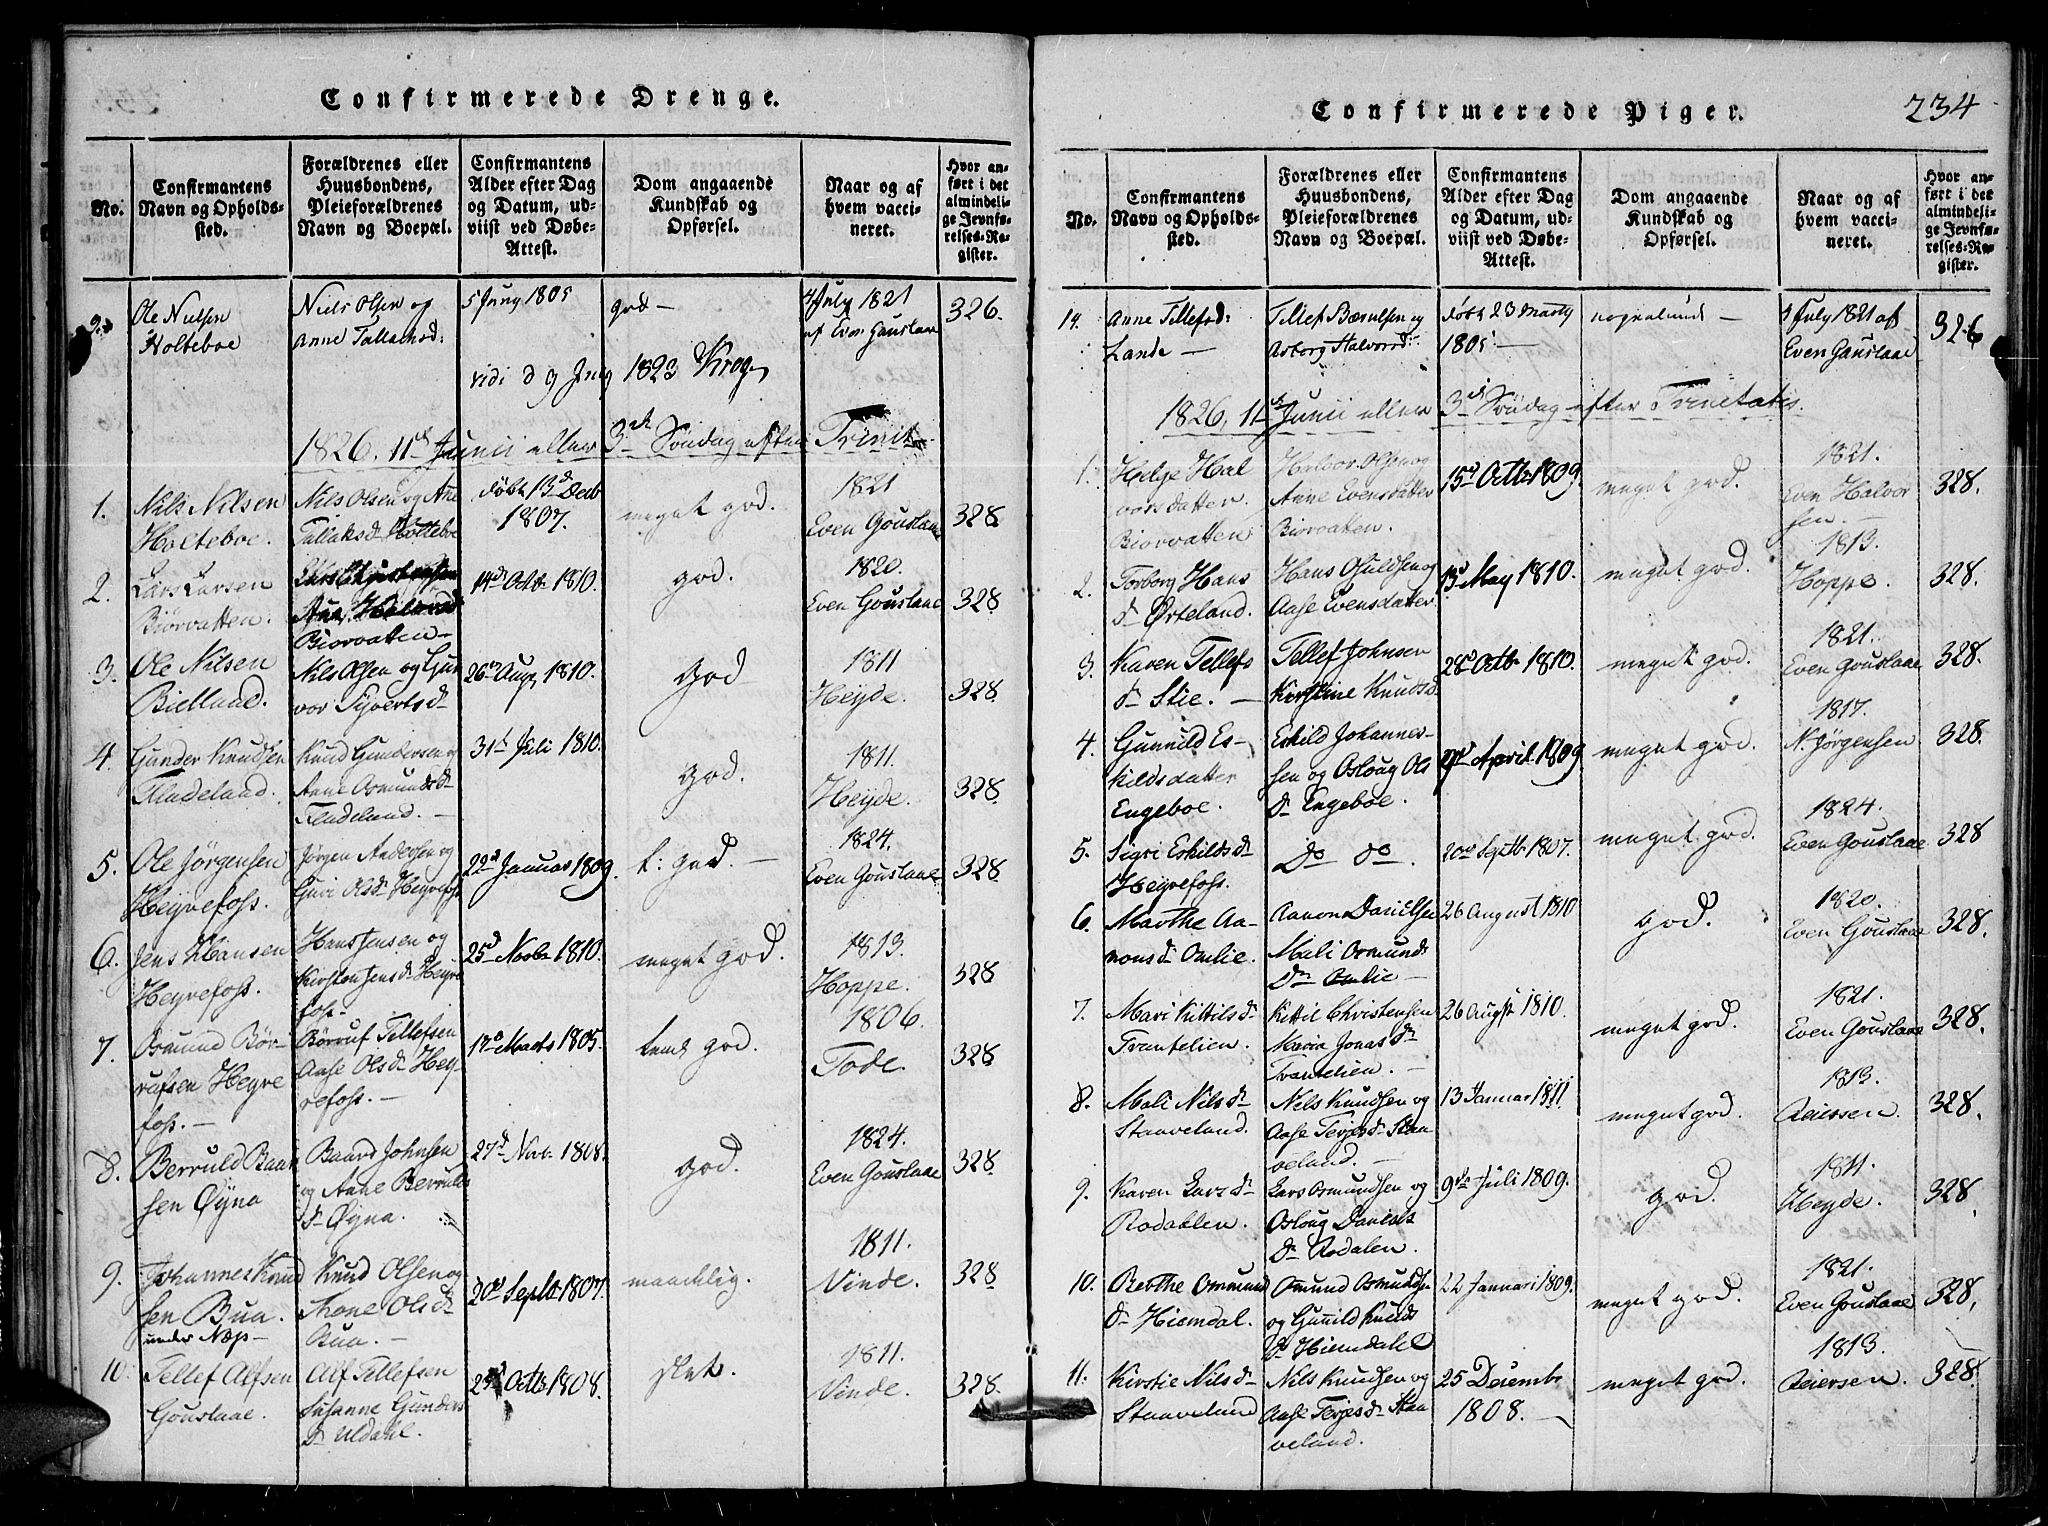 Confirmerede Drenge.
No.
Confirmantens
Navn og Opholds-
sted.
Forældrenes eller
Huusbondens,
Pleieforældrenes
Navn og Boepæl.
Confirmantens
Alder efter Dag
og Datum, ud-
viist ved Døbe-
Attest.
Dom angaaende
Kundskab og
Opførsel.
Naar og af
hvem vacci-
neret.
Hvor an-
ført i det
almindeli-
ge Jevnfø-
relses-Re-
gister.
Ole Nielsen
Holteboe
Niels Olsen og
Anne Tallachsd:
5 Juny 1805
god -
4 July 1821
af Even Gauslaae
326.
vidi d 9 Juny 1823 Krog
1826. 11te Junii eller 3die Söndag efter Trinit.
1.
Nils Nilsen
Holteboe.
Nils Olsen og Ane
Tallaksdr Holteboe
døbt 13d Decb
1807.
meget god.
1821
Even Gouslaae
328
2.
Lars Larsen
Biorvatten.
Biorvatten -
14de Octb 1810.
god.
1820.
Even Gouslaae
328
3.
Ole Nilsen
Bielland.
Nils Olsen og Gun
vor Syvertsdr
26de Aug. 1810.
god
1811
Heyde.
328
4.
Gunder Knudsen
Fladeland.
Knud Gundersen og
Anne Osmundsdr
Fladeland. -
31te Juli 1810.
god.
1811.
Heyde.
328.
5.
Ole Jörgensen
Heyrefoss.
Jörgen Andersen og
Guri Olsdr Heyrefoss
22de Januar 1809.
t: god. -
1824.
Even Gouslaae
328
6.
Jens Hansen
Heyrefoss.
Hans Jensen og
Kirsten Jensdr Heyre
foss.-
25d Novbr 1810.
meget god.
1813.
Hoppe.
328
7.
Osmund Bör-
rufsen Heyre
foss. -
Börruf Tellefsen
Aase Olsdr Hey
refoss. -
17de Marts 1805.
teml god.
1806.
Tode.
328
8.
Berruld Baar
sen Øyna
Baard Johnsen
og Anne Berruls
dr Øyna.
27de Novb. 1808.
god.
1824.
Even Gouslaae
328
9.
Johannes Knud
sen Bua.
under Næs -
Knud Olsen og
Anne Olsdr
Bua. -
20de Septb 1807.
maadelig.
1811.
Vinde.
328
10.
Tellef Alfsen
Gouslaae.
Alf Tellefsen
Susanne Gunders
dr Uldahl.
Octb 1808.
slet.
1811.
Vinde.
328.
Confirmerede Piger.
234
No.
Confirmantens
Navn og Opholds-
sted.
Forældrenes eller
Huusbondens,
Pleieforældrenes
Navn og Boepæl.
Confirmantens
Alder efter Dag
og Datum, ud-
viist ved Døbe-
Attest.
Dom angaaende
Kundskab og
Opførsel.
Naar og af
hvem vacci-
neret.
Hvor an-
ført i det
almindeli-
ge Jevnfø-
relses-Re-
gister.
14.
Anne Tellefsd:
Lande -
Tellef Bærulsen og
Asborg Halvorsd:
døbt 23 Marty
1805 -
4 July 1821 af
Even Gauslaae
326
1826, 11te Junii eller 3die Söndag efter Trinitatis.
1.
Helge Hal
vorsdatter
Biorvatten.
Halvor Olsen og
Anne Evensdatter
Biorvatten.
15d Octb 1809.
meget god.
1821.
Even Halvor
sen. -
328.
2.
Torborg Hans
dr Ørteland.
Hans Osuldsen og
Aase Evensdatter
13d May 1810.
meget god.
1813.
Hoppe.
328.
3.
Karen Tellefs
dr Stie. -
Tellef Johnsen
Kirstine Knudsd.
28de Octb 1810.
meget god.
1821.
Even Gouslaae
328.
4.
Gunnild Es-
kildsdatter
Engeboe.
Eskild Johannes-
sen og Osloug Ols
dr Engeboe.
April 1809
meget god.
1817.
N. Jörgensen
328.
5.
Sigri Eskildsdr
Heyrefoss.
Do do.
20de Septb 1807.
meget god.
1824.
Even Gouslaae
328
6.
Marthe Aa-
nonsdr Omlie.
Aanon Danielsen
Mali Osmunds
dr Omlie -
26 August 1810
god.
1820.
Even Gouslaae
328.
7.
Mari Kittilsdr
Trantelien.
Kittil Christensen
Maria Jonasdr
Trantelien. -
26 Augst 1810.
meget god.
1821.
Even Gouslaae
328.
8.
Mali Nilsdr
Staaveland.
Nils Knudsen og
Aase Terjesdr Staa-
veland. -
13 Januar 1811
meget god.
1813.
Reiersen.
328.
9.
Karen Larsdr
Rodahlen.
Lars Osmundsen og
Osloug Daniels
dr Rodalen.
9de Juli 1809.
god.
1811.
Heyde.
328.
10.
Berthe Ommund
dr Hiemdal.
Ommund Osmundsen
og Gunnild Knuds
dr Hiemdahl
22 Januari 1809.
meget god.
1821.
Even Gouslaae
328.
11.
Kirstie Nilsdr
Staaveland
Nils Knudsen og
Aase Terjesdr Staa
veland.
25 Decembr
1808. -
meget god.
1813.
Reiersen.
328.